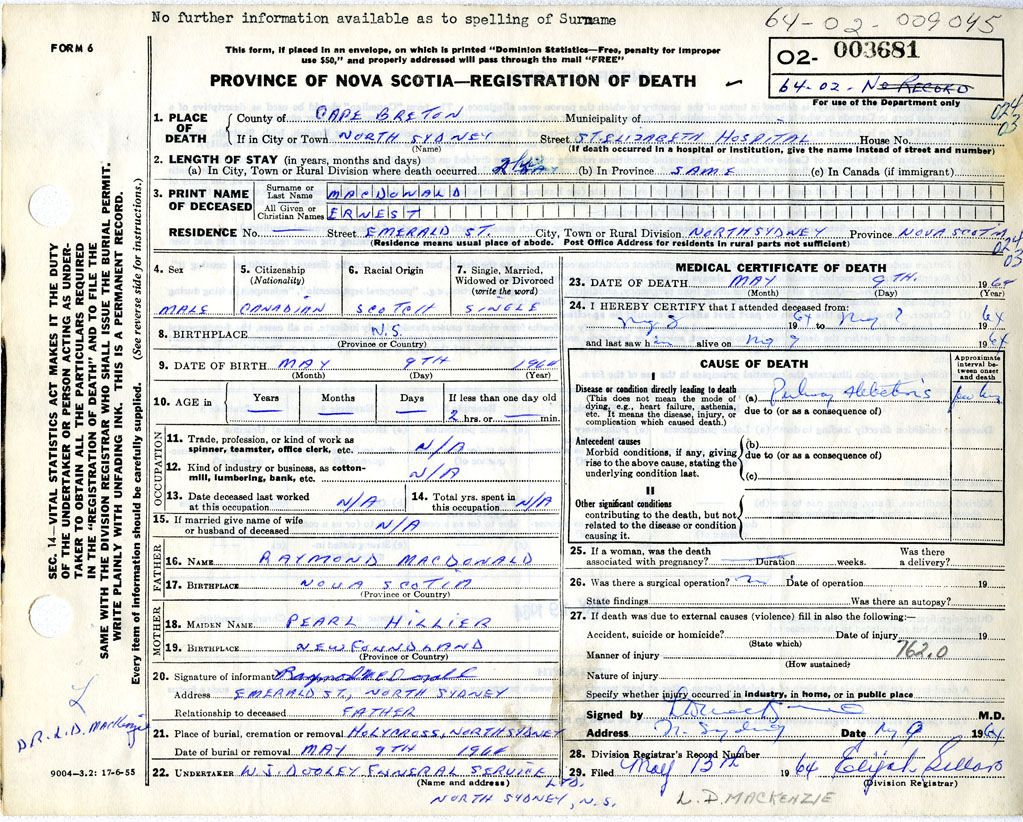 No further information available as to spelling of Surname
64-02-009045
FORM 6
This form, if placed in an envelope, on which is printed "Dominion Statistics—Free, penalty for improper
use $50," and properly addressed will pass through the mail "FREE"
02- 003681
64-02- No RECORD
For use of the Department only
PROVINCE OF NOVA SCOTIA—REGISTRATION OF DEATH
024
03
1. PLACE OF DEATH
County of CAPE BRETON Municipality of
If in City or Town NORTH SYDNEY Street ST. ELIZABETH HOSPITAL House No.
(Name) (If death occurred in a hospital or institution, give the name instead of street and number)
2. LENGTH OF STAY (in years, months and days)
(a) In City, Town or Rural Division where death occurred (b) In Province SAME (c) In Canada (if immigrant)
3. PRINT NAME OF DECEASED
Surname or Last Name MACDONALD
All Given or Christian Names ERNEST
RESIDENCE No. — Street EMERALD ST. City, Town or Rural Division NORTH SYDNEY Province NOVA SCOTIA
(Residence means usual place of abode. Post Office Address for residents in rural parts not sufficient)
024
03
4. Sex
MALE
5. Citizenship
(Nationality)
CANADIAN
6. Racial Origin
SCOTCH
7. Single, Married,
Widowed or Divorced
(write the word)
SINGLE
8. BIRTHPLACE N.S.
(Province or Country)
9. DATE OF BIRTH MAY 9TH 1964
(Month) (Day) (Year)
10. AGE in Years — Months — Days — If less than one day old
2 hrs. or — min.
OCCUPATION
11. Trade, profession, or kind of work as
spinner, teamster, office clerk, etc. N/A
12. Kind of industry or business, as cotton-
mill, lumbering, bank, etc. N/A
13. Date deceased last worked
at this occupation N/A
14. Total yrs. spent in
this occupation N/A
15. If married give name of wife
or husband of deceased N/A
FATHER
16. NAME RAYMOND MACDONALD
17. BIRTHPLACE NOVA SCOTIA
(Province or Country)
MOTHER
18. MAIDEN NAME PEARL HILLIER
19. BIRTHPLACE NEWFOUNDLAND
(Province or Country)
20. Signature of informant Raymond McDonald
Address EMERALD ST., NORTH SYDNEY
Relationship to deceased FATHER
21. Place of burial, cremation or removal HOLYCROSS, NORTH SYDNEY
Date of burial or removal MAY 9TH 1964
22. UNDERTAKER W.J. DOOLEY FUNERAL SERVICE LTD.
(Name and address)
NORTH SYDNEY, N.S.
MEDICAL CERTIFICATE OF DEATH
23. DATE OF DEATH MAY 9TH. 1964
(Month) (Day) (Year)
24. I HEREBY CERTIFY that I attended deceased from:
1964 to 1964
and last saw him alive on 1964
CAUSE OF DEATH
Approximate interval between onset and death
I
Disease or condition directly leading to death
(This does not mean the mode of
dying, e.g., heart failure, asthenia,
etc. It means the disease, injury, or
complication which caused death.)
(a)
due to (or as a consequence of)
Antecedent causes
Morbid conditions, if any, giving
rise to the above cause, stating the
underlying condition last.
(b)
due to (or as a consequence of)
(c)
II
Other significant conditions
contributing to the death, but not
related to the disease or condition
causing it.
25. If a woman, was the death
associated with pregnancy? Duration weeks. Was there
a delivery?
26. Was there a surgical operation? Date of operation 19
State findings Was there an autopsy?
27. If death was due to external causes (violence) fill in also the following:—
Accident, suicide or homicide? Date of injury 19
(State which)
Manner of injury 762.0
(How sustained)
Nature of injury
Specify whether injury occurred in industry, in home, or in public place
Signed by M.D.
Address N. Sydney Date 9 1964
28. Division Registrar's Record Number
29. Filed May 13th 1964 Elijah
(Division Registrar)
L.D. MACKENZIE
SEC. 14—VITAL STATISTICS ACT MAKES IT THE DUTY
OF THE UNDERTAKER OR PERSON ACTING AS UNDER-
TAKER TO OBTAIN ALL THE PARTICULARS REQUIRED
IN THE "REGISTRATION OF DEATH" AND TO FILE THE
SAME WITH THE DIVISION REGISTRAR WHO SHALL ISSUE THE BURIAL PERMIT.
WRITE PLAINLY WITH UNFADING INK. THIS IS A PERMANENT RECORD.
Every item of information should be carefully supplied. (See reverse side for instructions.)
DR. L.D. MacKenzie
9004-3.2: 17-6-55